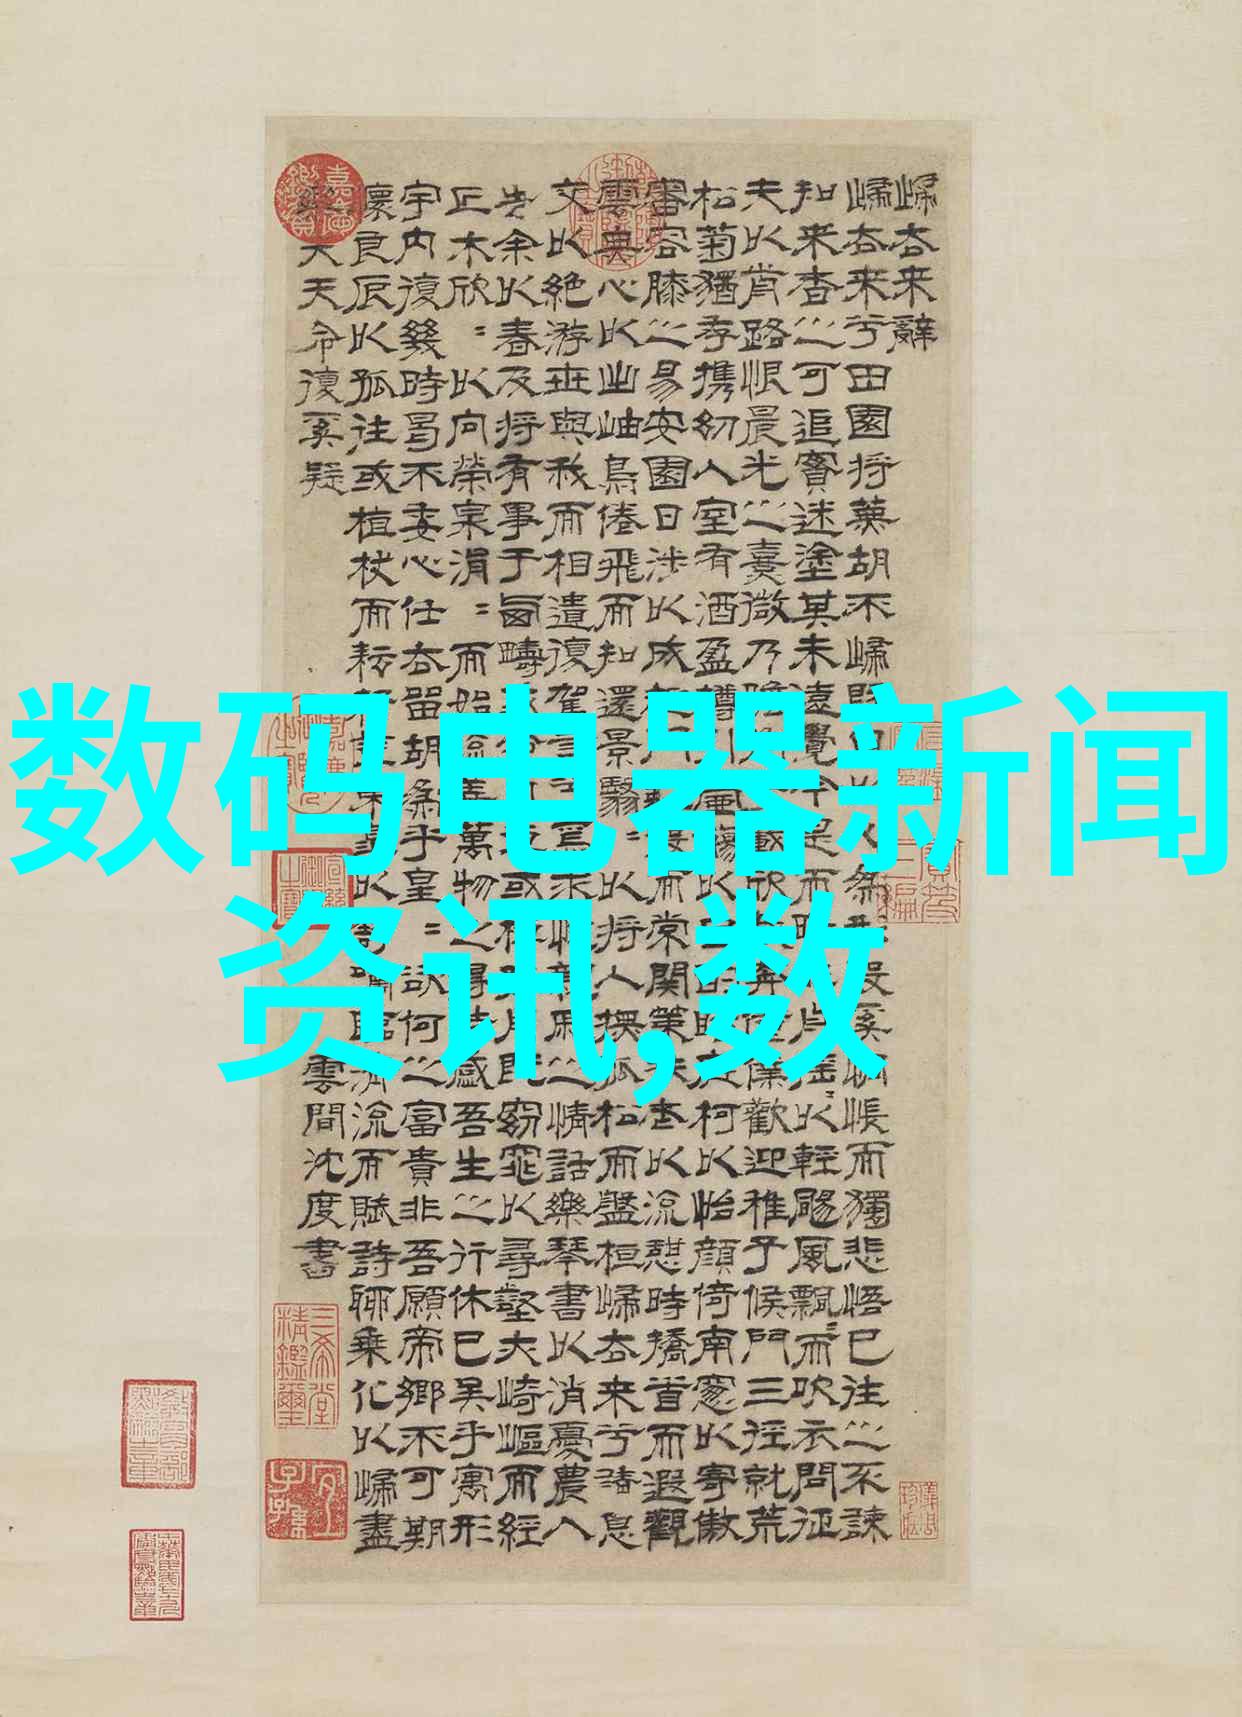 歸去来辭
歸去来兮田園將蕪胡不歸既以形役奚惆悵而獨悲悟已往之不諫
知来者之可追實迷塗其未遠覺今是而昨搖〻以輕颺風飄〻而吹衣問征
夫以前路恨晨光之熹微乃瞻載欣奔僮僕歡迎稚子候門三徑就荒
松菊猶存攜幼入室有酒盈樽引觴以酌眄庭柯以怡顏倚南窓以寄傲
審容膝之易安園日涉以成設而常關策扶老以流憩時撟首而遐觀
雲無心以出岫鳥倦飛而知還景翳〻以將入撫孤松而盤桓歸去来兮請息
交以絕游世與我而相遺復駕言兮焉求悅親戚之情話樂琴書以消憂農人
告余以春及將有事于西疇或棹孤舟既窈窕以尋壑亦崎嶇而經
丘木欣〻以向榮泉涓〻而始流善萬物之得時感吾生之行休已矣乎寓形
宇內復幾時曷不委心任去留胡為乎皇〻欲何之富貴非吾願帝鄉不可期
懷良辰以孤往或植杖而耘耔東皋以舒嘯臨清流而賦詩聊乘化以歸盡
樂夫天命復奚疑
雲間沈度書
数码电器新闻
资讯,数
三希堂
精鑑璽
宜
子孫